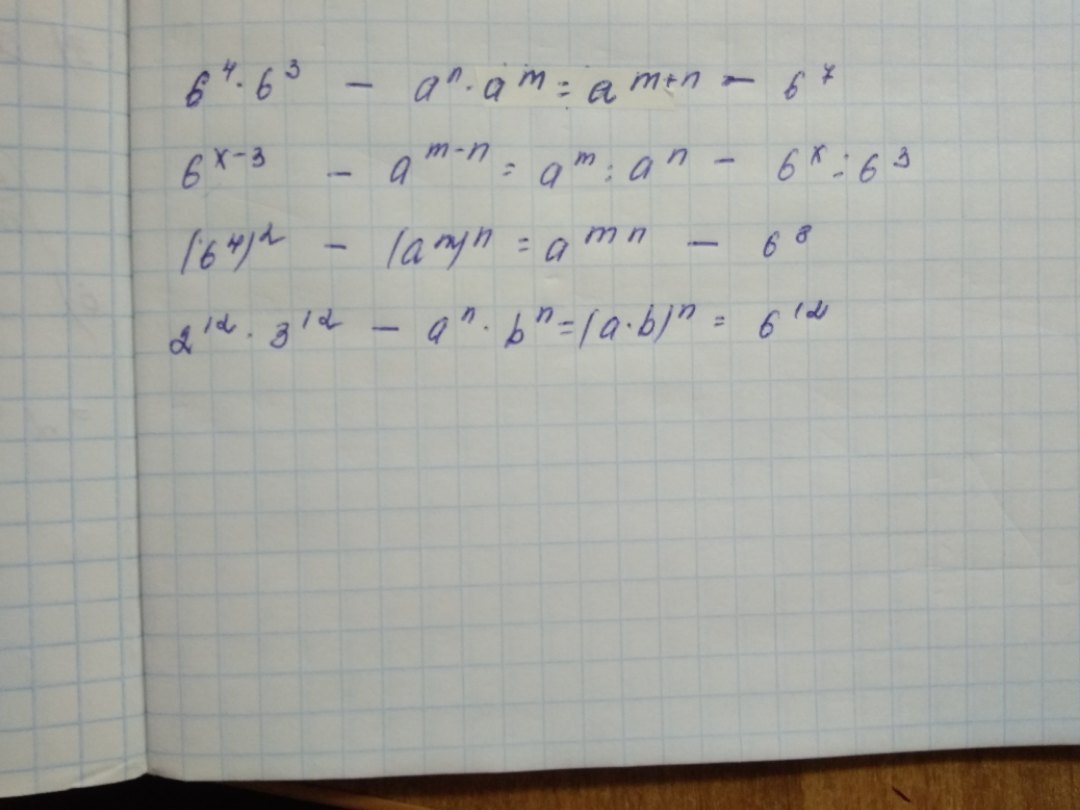 6⁴ · 6³ − aⁿ · aᵐ = aᵐ⁺ⁿ − 6⁷
6ˣ⁻³ − aᵐ⁻ⁿ = aᵐ : aⁿ − 6ˣ : 6³
(6⁴)² − (aᵐ)ⁿ = aᵐⁿ − 6⁸
2¹² · 3¹² − aⁿ · bⁿ = (a · b)ⁿ = 6¹²